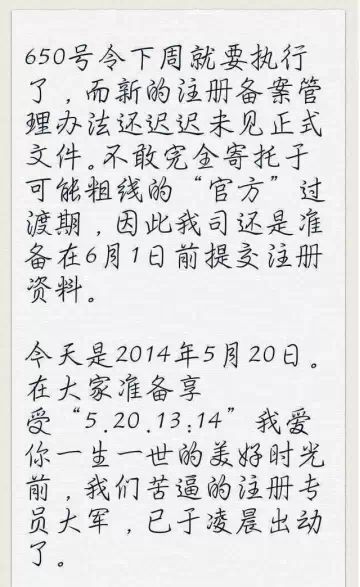 650号令下周就要执行
了，而新的注册备案管
理办法还迟迟未见正式
文件。不敢完全寄托于
可能粗线的“官方”过
渡期，因此我司还是准
备在6月1日前提交注册
资料。
今天是2014年5月20日。
在大家准备享
受“5.20.13:14”我爱
你一生一世的美好时光
前，我们苦逼的注册专
员大军，已于凌晨出动
了。